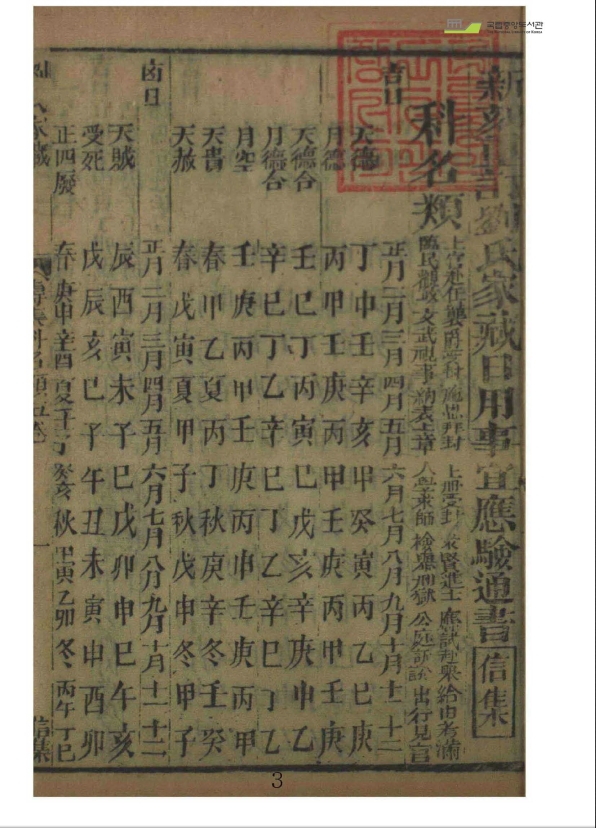 국립중앙도서관
新刻劉氏家藏日用事宜應驗通書 信集
科名類
上官赴任襲爵 上冊受封 進士應試赴舉給由考滿
臨民 文武視事納表上章 入學求師 刑獄 出行見官
吉日 正月二月三月四月五月六月七月八月九月十月十一十二
天德 丁申壬辛亥甲癸寅丙乙巳庚
月德 丙甲壬庚丙甲壬庚丙甲壬庚
天德合 壬巳丁丙寅巳戊亥辛庚申乙
月德合 辛巳丁乙辛巳丁乙辛巳丁乙
月空 壬庚丙甲壬庚丙甲壬庚丙甲
天貴 春甲乙夏丙丁秋庚辛冬壬癸
天赦 春戊寅夏甲子秋戊申冬甲子
凶日 正月二月三月四月五月六月七月八月九月十月十一十二
天賊 辰酉寅未子巳戊卯申巳午亥
受死 戊辰亥巳子午丑未寅申酉卯
正四廢 春庚申辛酉夏壬子癸亥秋甲寅乙卯冬丙午丁巳
家藏 科名類 一 信集
3